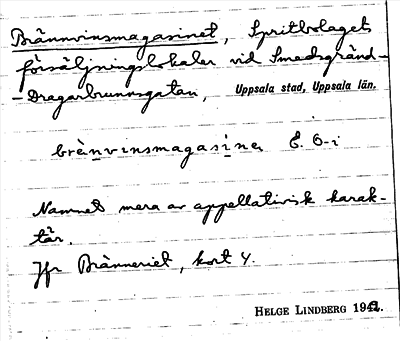 Brännvinsmagasinet, Spritbolagets
försäljningslokaler vid Smedsgränd-
-Dragarbrunnsgatan, Uppsala stad, Uppsala län.
brènvinsmagasìne E. 6-i
Namnet mera av appellativisk karak-
tär.
Jfr Bränneriet, kort 4.
HELGE LINDBERG 1942.